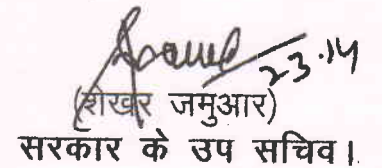 23.14
(शेखर जमुआर)
सरकार के उप सचिव।